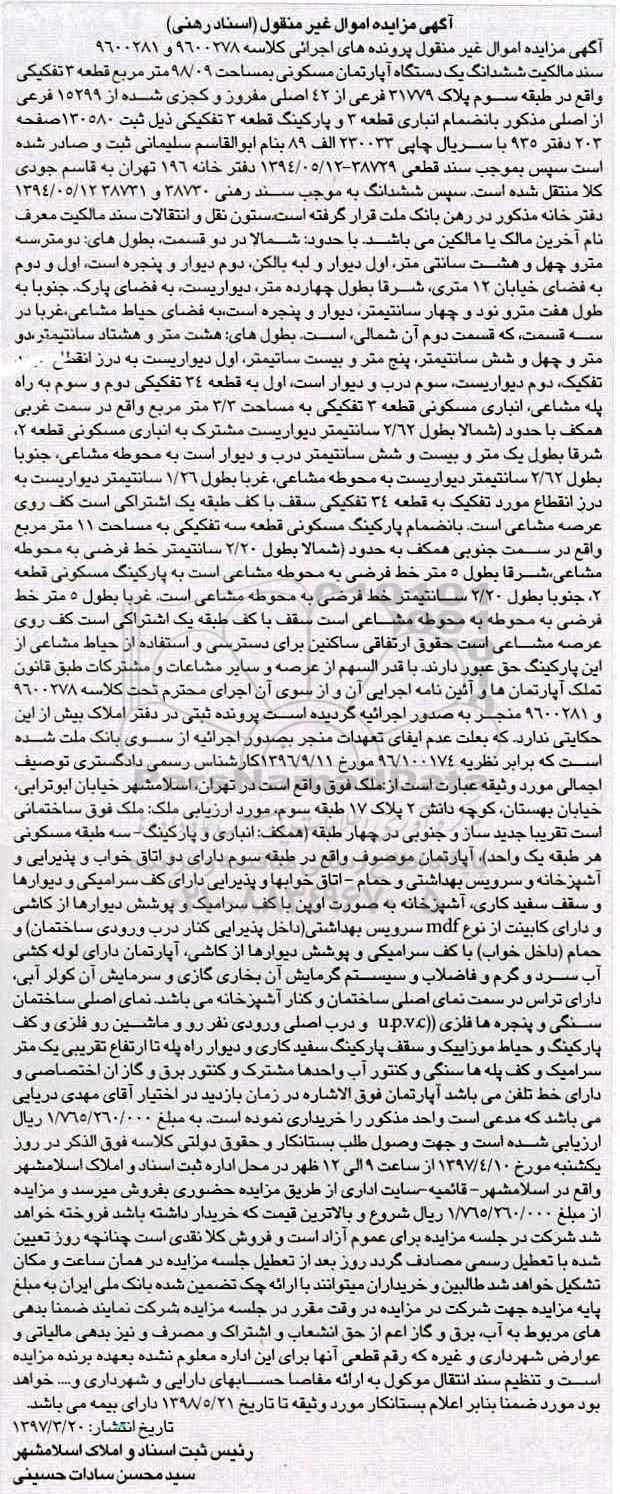 آگهی مزایده اموال غیر منقول (اسناد رهنی)
آگهی مزایده اموال غیر منقول پرونده های اجرائی کلاسه ۹۶۰۰۲۷۸ و ۹۶۰۰۲۸۱
سند مالکیت ششدانگ یک دستگاه آپارتمان مسکونی بمساحت ۹۸/۰۹ متر مربع قطعه ۳ تفکیکی
واقع در طبقه سوم پلاک ۳۱۷۷۹ فرعی از ۴۲ اصلی مفروز و کجزی شده از ۱۵۲۹۹ فرعی
از اصلی مذکور بانضمام انباری قطعه ۳ و پارکینگ قطعه ۳ تفکیکی ذیل ثبت ۱۳۰۵۸۰ صفحه
۲۰۳ دفتر ۹۳۵ با سریال چاپی ۲۳۰۰۳۳ الف ۸۹ بنام ابوالقاسم سلیمانی ثبت و صادر شده
است سپس بموجب سند قطعی ۳۸۷۲۹-۱۳۹۴/۰۵/۱۲ دفتر خانه ۱۹۶ تهران به قاسم جودی
کلا منتقل شده است. سپس ششدانگ به موجب سند رهنی ۳۸۷۳۰ و ۳۸۷۳۱ ۱۳۹۴/۰۵/۱۲
دفتر خانه مذکور در رهن بانک ملت قرار گرفته است.ستون نقل و انتقالات سند مالکیت معرف
نام آخرین مالک یا مالکین می باشد. با حدود: شمالا در دو قسمت، بطول های: دومتر،سه
مترو چهل و هشت سانتی متر، اول دیوار و لبه بالکن، دوم دیوار و پنجره است، اول و دوم
به فضای خیابان ۱۲ متری، شرقا بطول چهارده متر، دیواریست، به فضای پارک. جنوبا به
طول هفت مترو نود و چهار سانتیمتر، دیوار و پنجره است،به فضای حیاط مشاعی،غربا در
سه قسمت، که قسمت دوم آن شمالی، است. بطول های: هشت متر و هشتاد سانتیمتر،دو
متر و چهل و شش سانتیمتر، پنج متر و بیست ساتیمتر، اول دیواریست به درز انقطاع
تفکیک، دوم دیواریست، سوم درب و دیوار است، اول به قطعه ۳۴ تفکیکی دوم و سوم به راه
پله مشاعی، انباری مسکونی قطعه ۳ تفکیکی به مساحت ۳/۳ متر مربع واقع در سمت غربی
همکف با حدود (شمالا بطول ۲/۶۲ سانتیمتر دیواریست مشترک به انباری مسکونی قطعه ۲،
شرقا بطول یک متر و بیست و شش سانتیمتر درب و دیوار است به محوطه مشاعی، جنوبا
بطول ۲/۶۲ سانتیمتر دیواریست به محوطه مشاعی، غربا بطول ۱/۲۶ سانتیمتر دیواریست به
درز انقطاع مورد تفکیک به قطعه ۳۴ تفکیکی سقف با کف طبقه یک اشتراکی است کف روی
عرصه مشاعی است. بانضمام پارکینگ مسکونی قطعه سه تفکیکی به مساحت ۱۱ متر مربع
واقع در سمت جنوبی همکف به حدود (شمالا بطول ۲/۲۰ سانتیمتر خط فرضی به محوطه
مشاعی،شرقا بطول ۵ متر خط فرضی به محوطه مشاعی است به پارکینگ مسکونی قطعه
۲، جنوبا بطول ۲/۲۰ سانتیمتر خط فرضی به محوطه مشاعی است. غربا بطول ۵ متر خط
فرضی به محوطه به محوطه مشاعی است سقف با کف طبقه یک اشتراکی است کف روی
عرصه مشاعی است حقوق ارتفاقی ساکنین برای دسترسی و استفاده از حیاط مشاعی از
این پارکینگ حق عبور دارند. با قدر السهم از عرصه و سایر مشاعات و مشترکات طبق قانون
تملک آپارتمان ها و آئین نامه اجرایی آن و از سوی آن اجرای محترم تحت کلاسه ۹۶۰۰۲۷۸
و ۹۶۰۰۲۸۱ منجر به صدور اجرائیه گردیده است پرونده ثبتی در دفتر املاک بیش از این
حکایتی ندارد. که بعلت عدم ایفای تعهدات منجر بصدور اجرائیه از سوی بانک ملت شده
است که برابر نظریه ۹۶/۱۰۰۱۷۴ مورخ ۱۳۹۶/۹/۱۱کارشناس رسمی دادگستری توصیف
اجمالی مورد وثیقه عبارت است از:ملک فوق واقع است در تهران، اسلامشهر خیابان ابوترابی،
خیابان بهستان، کوچه دانش ۲ پلاک ۱۷ طبقه سوم، مورد ارزیابی ملک: ملک فوق ساختمانی
است تقریبا جدید ساز و جنوبی در چهار طبقه (همکف: انباری و پارکینگ- سه طبقه مسکونی
هر طبقه یک واحد)، آپارتمان موصوف واقع در طبقه سوم دارای دو اتاق خواب و پذیرایی و
آشپزخانه و سرویس بهداشتی و حمام - اتاق خوابها و پذیرایی دارای کف سرامیکی و دیوارها
و سقف سفید کاری، آشپزخانه به صورت اوپن با کف سرامیک و پوشش دیوارها از کاشی
و دارای کابینت از نوع mdf سرویس بهداشتی(داخل پذیرایی کنار درب ورودی ساختمان) و
حمام (داخل خواب) با کف سرامیکی و پوشش دیوارها از کاشی، آپارتمان دارای لوله کشی
آب سرد و گرم و فاضلاب و سیستم گرمایش آن بخاری گازی و سرمایش آن کولر آبی،
دارای تراس در سمت نمای اصلی ساختمان و کنار آشپزخانه می باشد. نمای اصلی ساختمان
سنگی و پنجره ها فلزی ((u.p.v.c و درب اصلی ورودی نفر رو و ماشین رو فلزی و کف
پارکینگ و حیاط موزاییک و سقف پارکینگ سفید کاری و دیوار راه پله تا ارتفاع تقریبی یک متر
سرامیک و کف پله ها سنگی و کنتور آب واحدها مشترک و کنتور برق و گاز ان اختصاصی و
دارای خط تلفن می باشد آپارتمان فوق الاشاره در زمان بازدید در اختیار آقای مهدی دریایی
می باشد که مدعی است واحد مذکور را خریداری نموده است. به مبلغ ۱/۷۶۵/۲۶۰/۰۰۰ ریال
ارزیابی شده است و جهت وصول طلب بستانکار و حقوق دولتی کلاسه فوق الذکر در روز
یکشنبه مورخ ۱۳۹۷/۴/۱۰ از ساعت ۹ الی ۱۲ ظهر در محل اداره ثبت اسناد و املاک اسلامشهر
واقع در اسلامشهر- قائمیه-سایت اداری از طریق مزایده حضوری بفروش میرسد و مزایده
از مبلغ ۱/۷۶۵/۲۶۰/۰۰۰ ریال شروع و بالاترین قیمت که خریدار داشته باشد فروخته خواهد
شد شرکت در جلسه مزایده برای عموم آزاد است و فروش کلا نقدی است چنانچه روز تعیین
شده با تعطیل رسمی مصادف گردد روز بعد از تعطیل جلسه مزایده در همان ساعت و مکان
تشکیل خواهد شد طالبین و خریداران میتوانند با ارائه چک تضمین شده بانک ملی ایران به مبلغ
پایه مزایده جهت شرکت در مزایده در وقت مقرر در جلسه مزایده شرکت نمایند ضمنا بدهی
های مربوط به آب، برق و گاز اعم از حق انشعاب و اشتراک و مصرف و نیز بدهی مالیاتی و
عوارض شهرداری و غیره که رقم قطعی آنها برای این اداره معلوم نشده بعهده برنده مزایده
است و تنظیم سند انتقال موکول به ارائه مفاصا حسابهای دارایی و شهرداری و.... خواهد
بود مورد ضمنا بنابر اعلام بستانکار مورد وثیقه تا تاریخ ۱۳۹۸/۵/۲۱ دارای بیمه می باشد.
تاریخ انتشار: ۱۳۹۷/۳/۲۰
رئیس ثبت اسناد و املاک اسلامشهر
سید محسن سادات حسینی